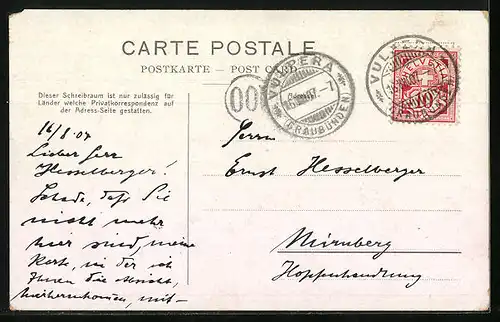 CARTE POSTALE
POSTKARTE – POST CARD
Dieser Schreibraum ist nur zulässig für
Länder welche Privatkorrespondenz auf
der Adress-Seite gestatten.
VULPERA
(GRAUBÜNDEN)
VULPERA
HELVETIA
10
00
16/8.07
Lieber Herr
Hesselberger!
Schade, daß Sie
nicht mehr
hier sind, meine
Karte, in der ich
Ihnen die Absicht,
hierherzukommen, mit-
Herrn
Ernst Hesselberger
Nürnberg
Hopfenhandlung